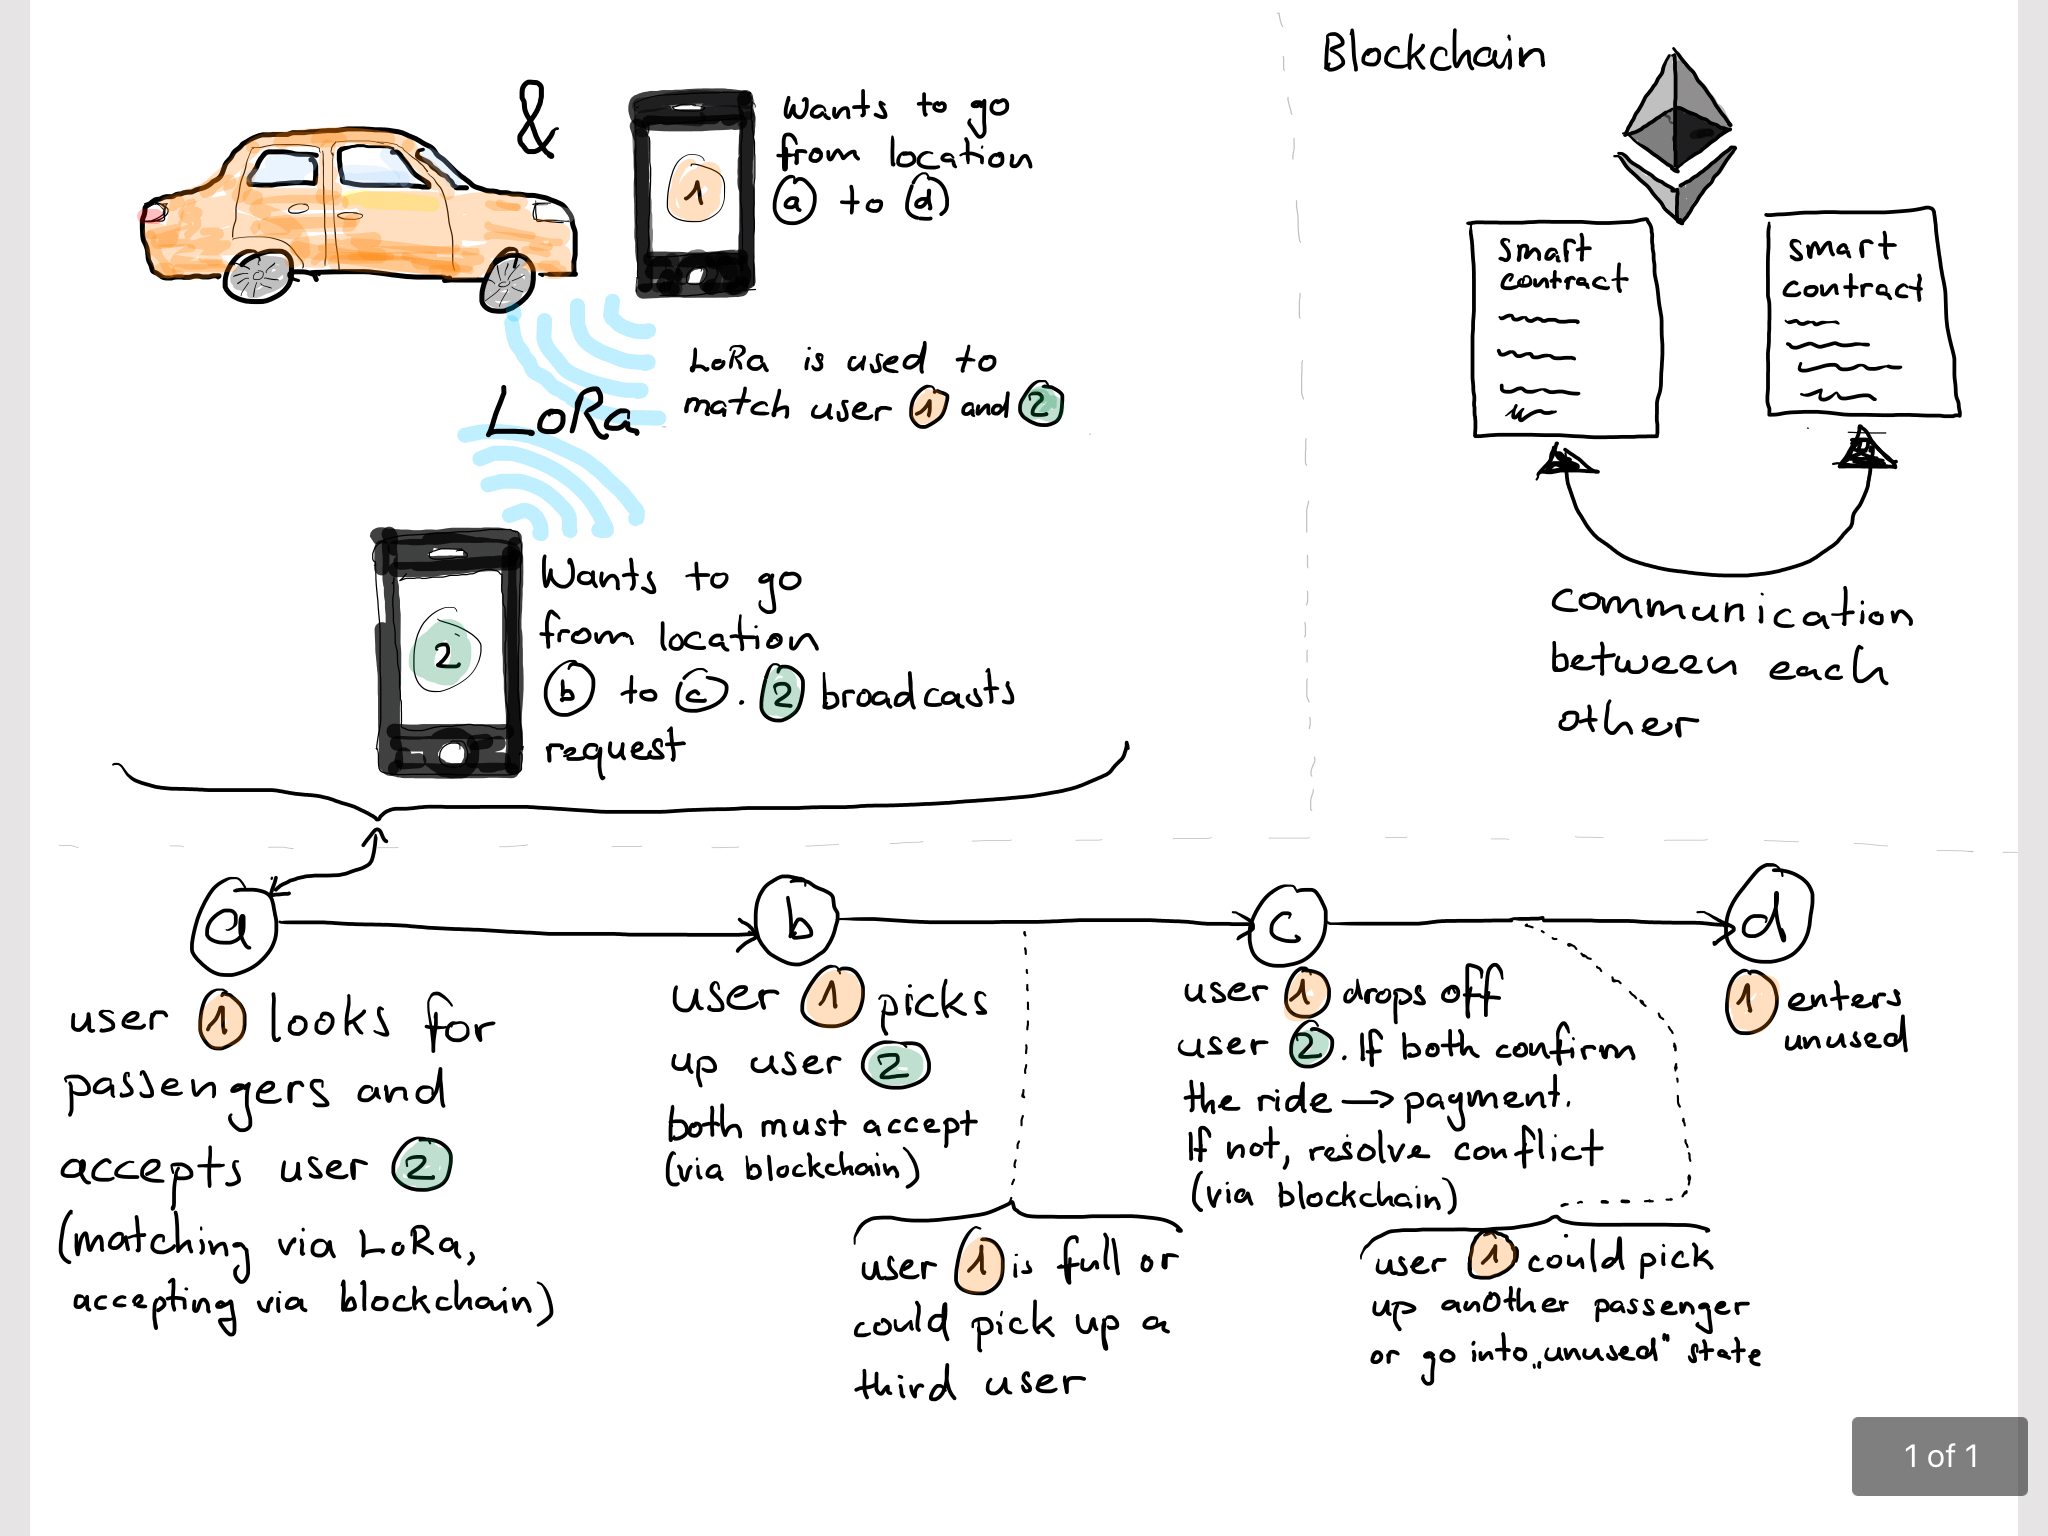 &
1
Wants to go
from location
a to d
LoRa
LoRa is used to
match user 1 and 2
2
Wants to go
from location
b to c. 2 broadcasts
request
Blockchain
smart
contract
smart
contract
communication
between each
other
a
user 1 looks for
passengers and
accepts user 2
(matching via LoRa,
accepting via blockchain)
b
user 1 picks
up user 2
both must accept
(via blockchain)
user 1 is full or
could pick up a
third user
c
user 1 drops off
user 2. If both confirm
the ride → payment.
If not, resolve conflict
(via blockchain)
user 1 could pick
up another passenger
or go into „unused" state
d
1 enters
unused
1 of 1